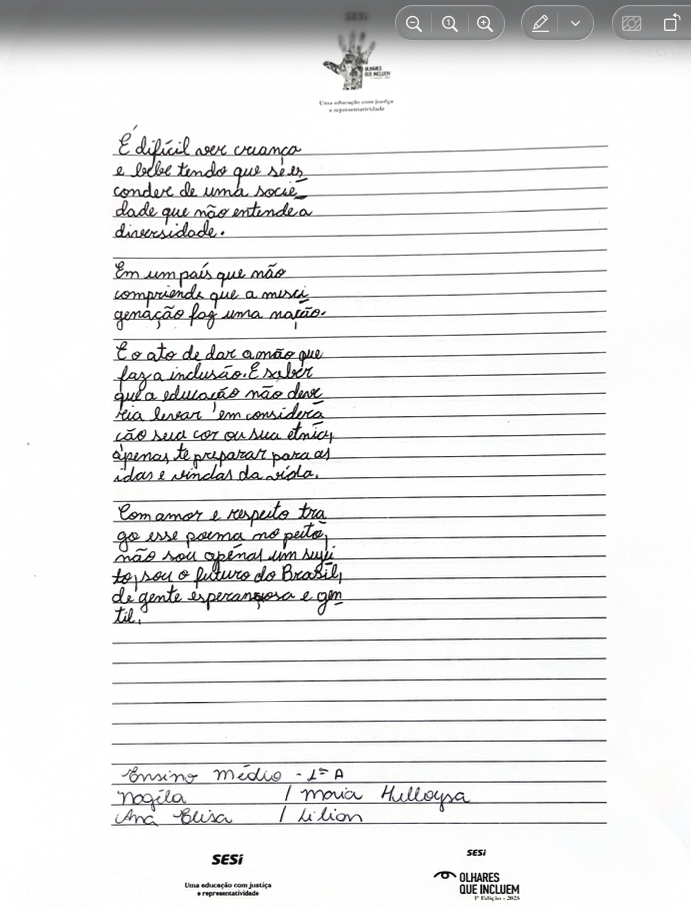 SESI
OLHARES
QUE INCLUEM
Uma educação com justiça
e representatividade
É difícil ver criança
e bebe tendo que se es
conder de uma socie_
dade que não entende a
diversidade.
Em um país que não
compriende que a misci_
genação faz uma nação.
E o ato de dar a mão que
faz a inclusão. E saber
que a educação não deve
ria levar em considera
ção sua cor ou sua etnia,
apenas te preparar para as
idas e vindas da vida.
Com amor e respeito tra
go esse poema no peito,
não sou apenas um sujei
to, sou o futuro do Brasil,
de gente esperançosa e gen
til.
Ensino Médio - 1ª A
Nogila / Maria Helloysa
Ana Elisa / Lilian
SESI
Uma educação com justiça
e representatividade
SESI
OLHARES
QUE INCLUEM
1ª Edição - 2025